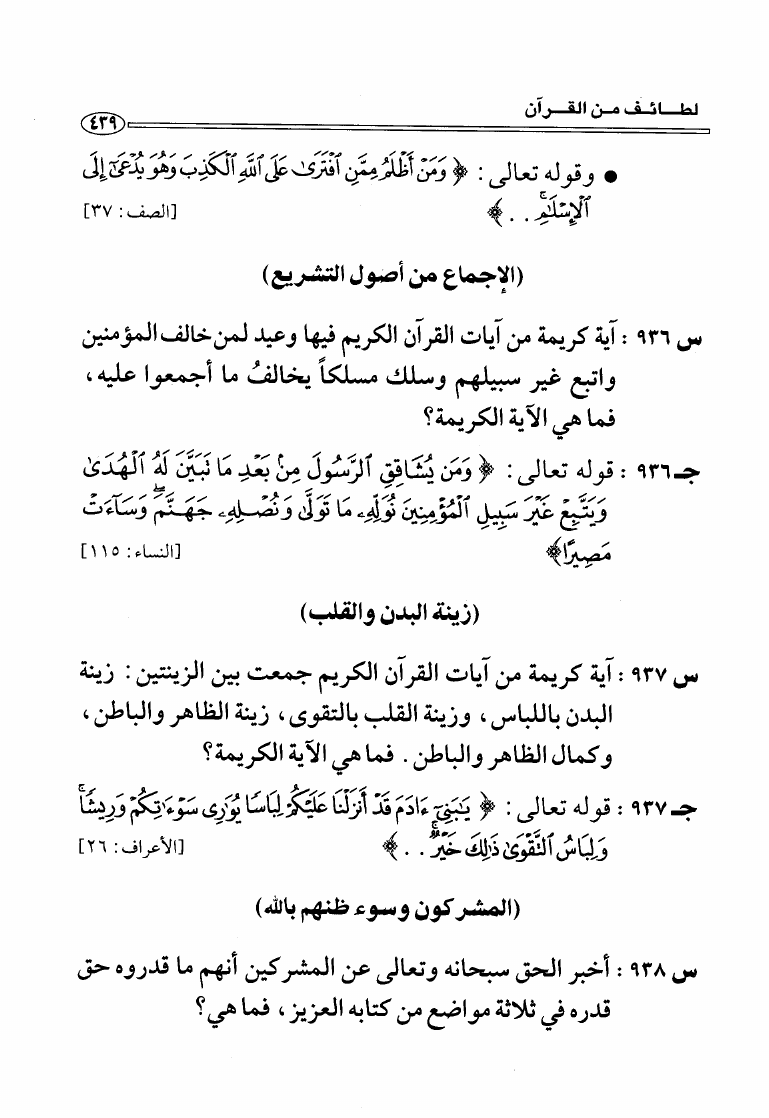 لطـــائـــف مـــن القـــرآن
٤٣٩
● وقوله تعالى : ﴿ وَمَنْ أَظْلَمُ مِمَّنِ ٱفْتَرَىٰ عَلَى ٱللَّهِ ٱلْكَذِبَ وَهُوَ يُدْعَىٰٓ إِلَى
ٱلْإِسْلَٰمِۚ . . ﴾ [الصف : ٣٧]
(الإجماع من أصول التشريع)
س ٩٣٦ : آية كريمة من آيات القرآن الكريم فيها وعيد لمن خالف المؤمنين
واتبع غير سبيلهم وسلك مسلكاً يخالفُ ما أجمعوا عليه،
فما هي الآية الكريمة؟
جـ ٩٣٦ : قوله تعالى : ﴿ وَمَن يُشَاقِقِ ٱلرَّسُولَ مِنۢ بَعْدِ مَا تَبَيَّنَ لَهُ ٱلْهُدَىٰ
وَيَتَّبِعْ غَيْرَ سَبِيلِ ٱلْمُؤْمِنِينَ نُوَلِّهِۦ مَا تَوَلَّىٰ وَنُصْلِهِۦ جَهَنَّمَۖ وَسَآءَتْ
مَصِيرًا﴾ [النساء : ١١٥]
(زينة البدن والقلب)
س ٩٣٧ : آية كريمة من آيات القرآن الكريم جمعت بين الزينتين : زينة
البدن باللباس، وزينة القلب بالتقوى، زينة الظاهر والباطن،
وكمال الظاهر والباطن . فما هي الآية الكريمة؟
جـ ٩٣٧ : قوله تعالى : ﴿ يَٰبَنِىٓ ءَادَمَ قَدْ أَنزَلْنَا عَلَيْكُمْ لِبَاسًا يُوَٰرِى سَوْءَٰتِكُمْ وَرِيشًاۖ
وَلِبَاسُ ٱلتَّقْوَىٰ ذَٰلِكَ خَيْرٌۚ . . ﴾ [الأعراف : ٢٦]
(المشركون وسوء ظنهم بالله)
س ٩٣٨ : أخبر الحق سبحانه وتعالى عن المشركين أنهم ما قدروه حق
قدره في ثلاثة مواضع من كتابه العزيز، فما هي؟